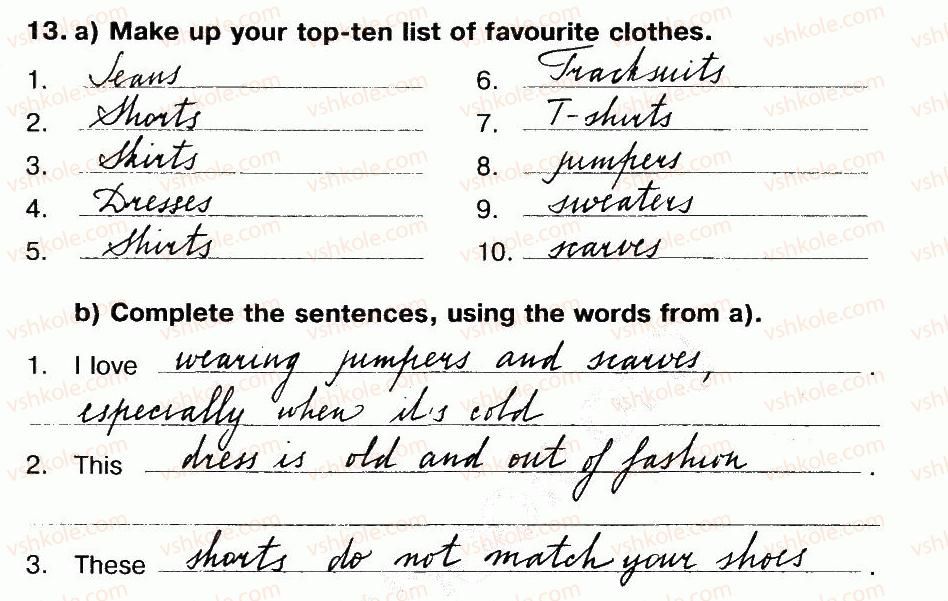 13. a) Make up your top-ten list of favourite clothes.
1. Jeans
2. Shorts
3. Skirts
4. Dresses
5. Shirts
6. Tracksuits
7. T-shirts
8. jumpers
9. sweaters
10. scarves
b) Complete the sentences, using the words from a).
1. I love wearing jumpers and scarves,
especially when it's cold.
2. This dress is old and out of fashion.
3. These shorts do not match your shoes.
vshkole.com